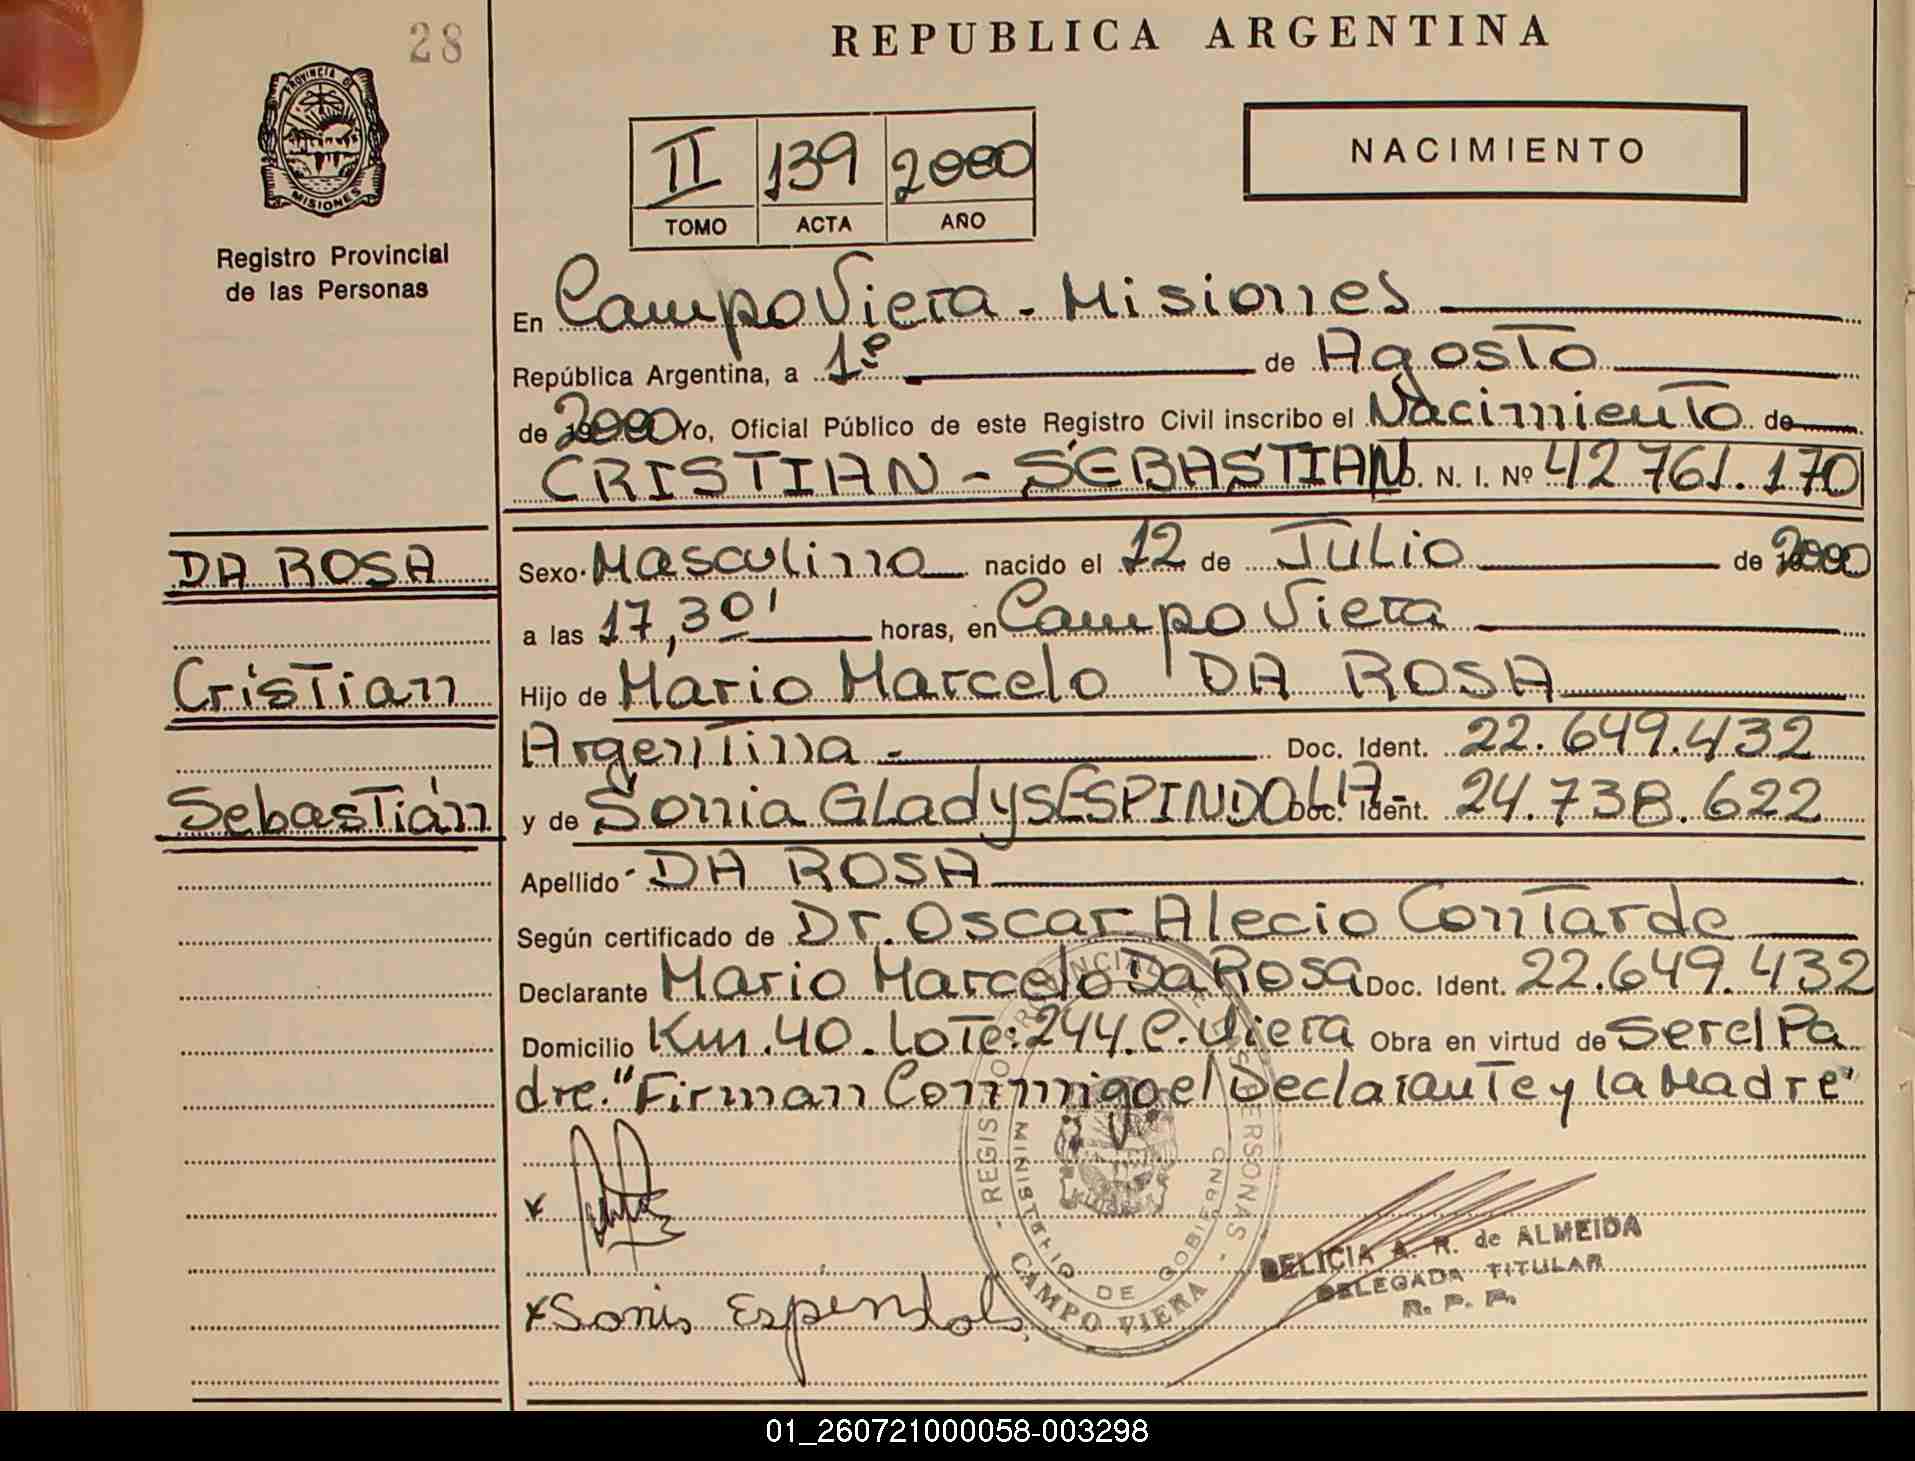 28
REPUBLICA ARGENTINA
PROVINCIA DE
MISIONES
Registro Provincial
de las Personas
NACIMIENTO
II 139 2000
TOMO ACTA AÑO
En Campo Viera - Misiones
República Argentina, a 1º de Agosto
de 2000 Yo, Oficial Público de este Registro Civil inscribo el Nacimiento de
CRISTIAN - SEBASTIAN D. N. I. Nº 42 761.170
DA ROSA
Cristian
Sebastián
Sexo Masculino nacido el 12 de Julio de 2000
a las 17,30' horas, en Campo Viera
Hijo de Mario Marcelo DA ROSA
Argentina - Doc. Ident. 22.649.432
y de Sonia Gladys ESPINDOLA - Doc. Ident. 24.738.622
Apellido DA ROSA
Según certificado de Dr. Oscar Alecio Contarde
Declarante Mario Marcelo Da Rosa Doc. Ident. 22.649.432
Domicilio Km. 40. Lote: 244. C. Viera Obra en virtud de Ser el Pa
dre. "Firman Conmigo el Declarante y la Madre"
REGISTRO PROVINCIAL DE LAS PERSONAS
MINISTERIO DE GOBIERNO
- CAMPO VIERA -
DELICIA A. R. de ALMEIDA
DELEGADA TITULAR
R. P. P.
x Sonia Espindola
01_260721000058-003298